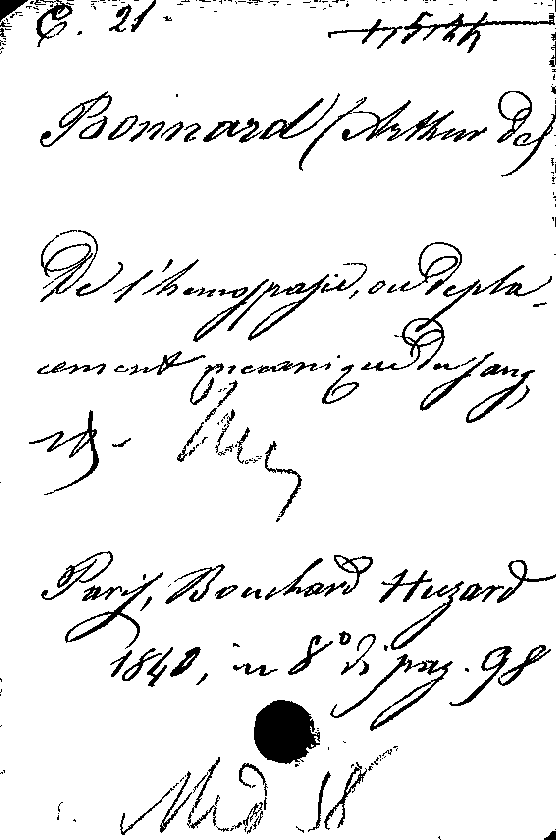 C. 21
Bonnard (Arthur de)
De l'hemospasie, ou depla-
cement mecanique du sang,
Paris, Bouchard Huzard
1840, in 8° di pag. 98
Med 58